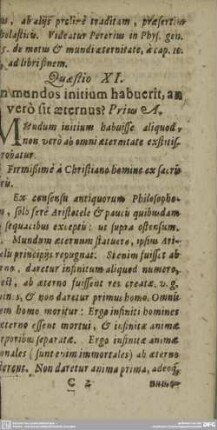 us, ab alijs prolixè traditam, præsertim
holasticis. Videatur Pererius in Phys. gen.
5. de motus & mundi æternitate, à cap. 10.
, ad libri finem.
Quæstio XI.
n mundus initium habuerit, an
verò sit æternus? Prius A.
Mundum initium habuisse aliquod,
non verò ab omni æternitate exstitis-
robatur.
Firmissimè à Christiano homine ex sacris
Ex consensu antiquorum Philosopho-
, solo ferè Aristotele & paucis quibusdam
sequacibus exceptis: ut supra ostensum.
Mundum æternum statuere, ipsius Ari-
lis principijs repugnat. Etenim si fuisset ab
no, daretur infinitum aliquod numero,
vel si, ab æterno fuissent res creatæ. v. g.
& non daretur primus homo. Omnis
em homo moritur: Ergo infiniti homines
æterno essent mortui, & infinitæ animæ
rporibus separatæ. Ergo infinitæ animæ
onales (sunt enim immortales) ab æterno
Non daretur anima prima, adeoq,
C 2